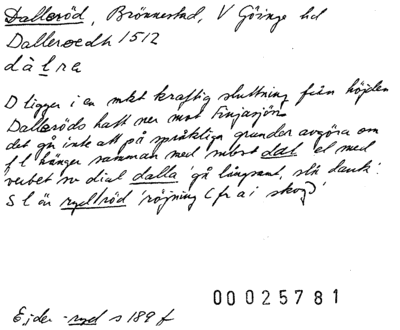 Dalleröd, Brönnestad, V Göinge hd
Dalleroedh 1512
dàlra
D ligger i en mkt kraftig sluttning från höjden
Dalleröds hatt ner mot Finjasjön
det går inte att på språkliga grunder avgöra om
fl hänger samman med subst dal el med
verbet sv dial dalla 'gå långsamt, slå dank'.
Sl är ryd/röd 'röjning (fr a i skog)'
Ejder -ryd s 189 f
00025781